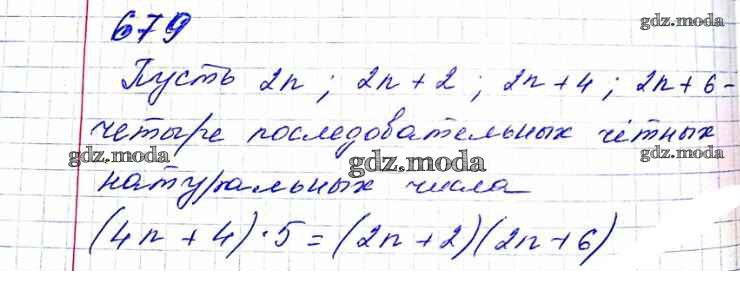 679
gdz.moda
gdz.moda
Пусть 2n ; 2n + 2 ; 2n + 4 ; 2n + 6 -
четыре последовательных чётных
gdz.moda
gdz.moda
gdz.moda
натуральных числа
(4n + 4) · 5 = (2n + 2)(2n + 6)